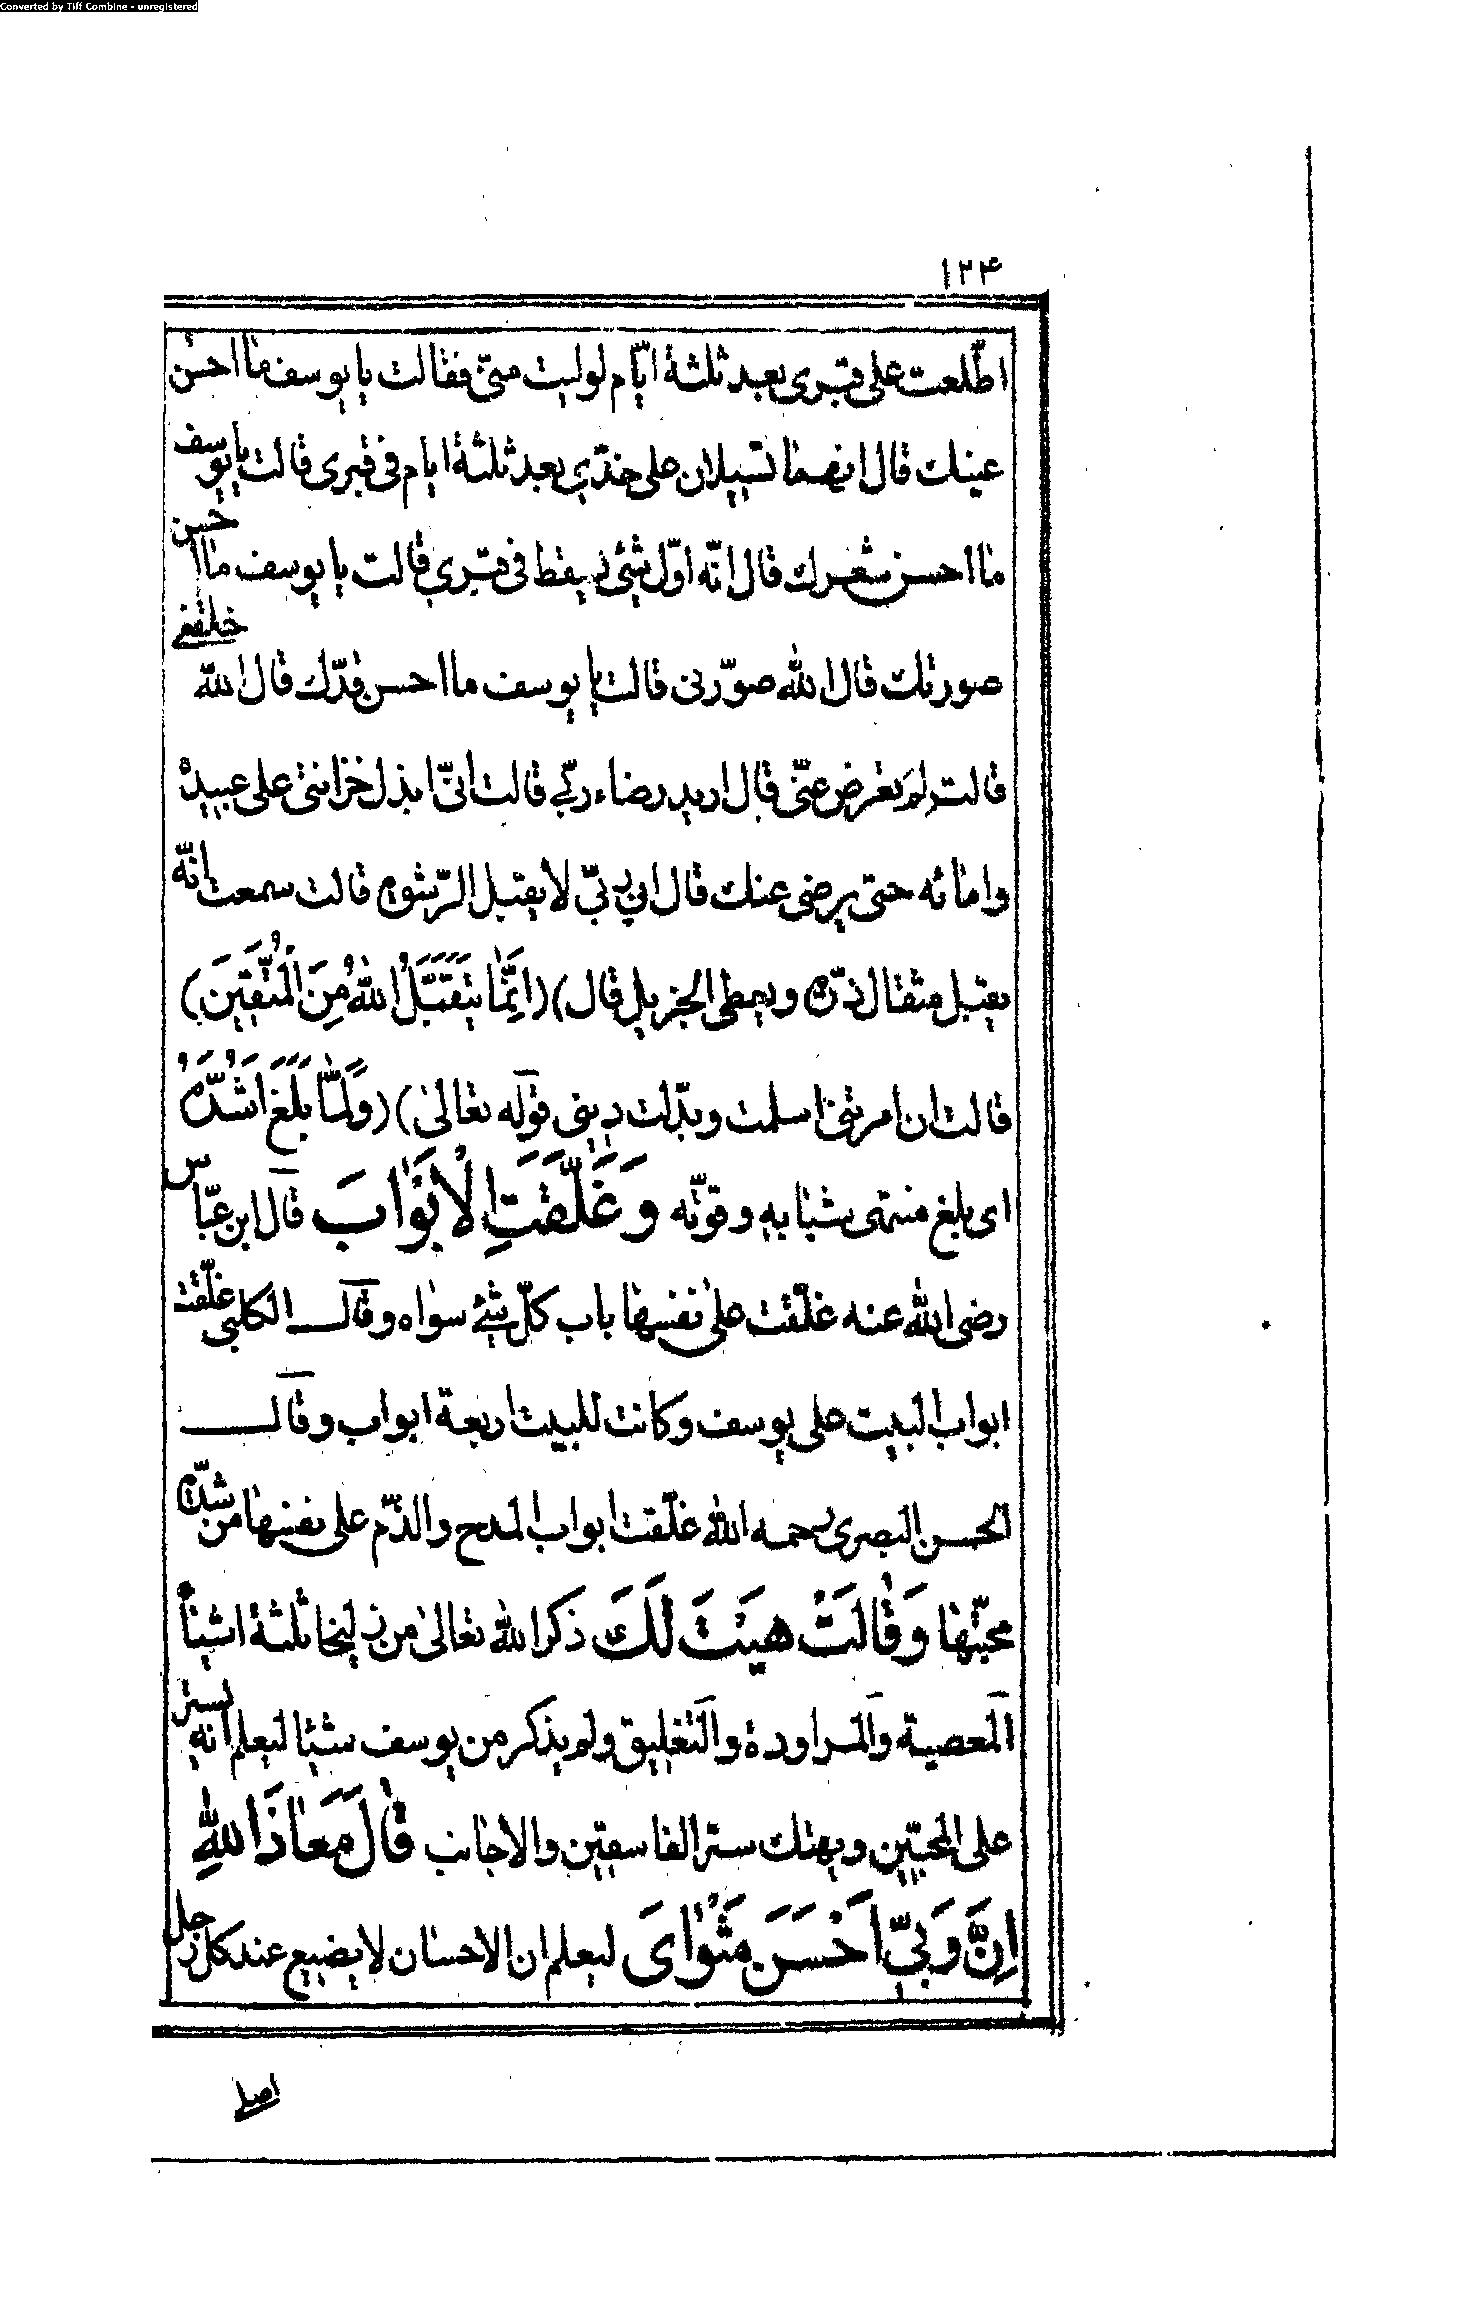 Converted by Tiff Combine - unregistered
١٣۴
اطّلعت على قبرى بعد ثلثة ايّام لوليت منّى فقالت يا يوسف ما احسن
عينك قال انهما تسيلان على خدّى بعد ثلثة ايام فى قبرى قالت يا يوسف
ما احسن شعرك قال انّه اوّل شئ يسقط فى قبرى قالت يا يوسف ما احسن
صورتك قال الله صوّرنى قالت يا يوسف ما احسن قدّك قال الله خلقنى
قالت لم تعرض عنّى قال اريد رضاء ربّى قالت انّا ابذل خزائنى على عبيده
وامائه حتى يرضى عنك قال انّ ربّى لا يقبل الرّشوة قالت سمعت انّه
يقبل مثقال ذرّة ويعطى الجزيل قال) (اِنَّمَا يَتَقَبَّلُ اللهُ مِنَ الْمُتَّقِيْنَ)
قالت ان امرتنى اسلمت وبدّلت دينى قوله تعالىٰ) (وَلَمَّا بَلَغَ اَشُدَّهُ
اى بلغ منتهى شبابه وقوّته وَغَلَّقَتِ الْاَبْوَابَ قال ابن عبّاس
رضى الله عنه غلّقت على نفسها باب كلّ شئ سواه وقال الكلبى غلّقت
ابواب البيت على يوسف وكانت للبيت اربعة ابواب وقال
الحسن البصرى رحمه الله غلّقت ابواب المدح والذّم على نفسها من شدّة
محبّتها وَقَالَتْ هَيْتَ لَكَ ذكر الله تعالىٰ من زليخا ثلثة اشيأ
المعصية والمراودة والتغليق ولم يذكر من يوسف شيئا ليعلم انه يستر
على المحبّين ويهتك ستر الفاسقين والاجانب قَالَ مَعَاذَ اللهِ
اِنَّه رَبِّىْ اَحْسَنَ مَثْوَاىَ ليعلم ان الاحسان لا يضيع عند كل رجل
اصل